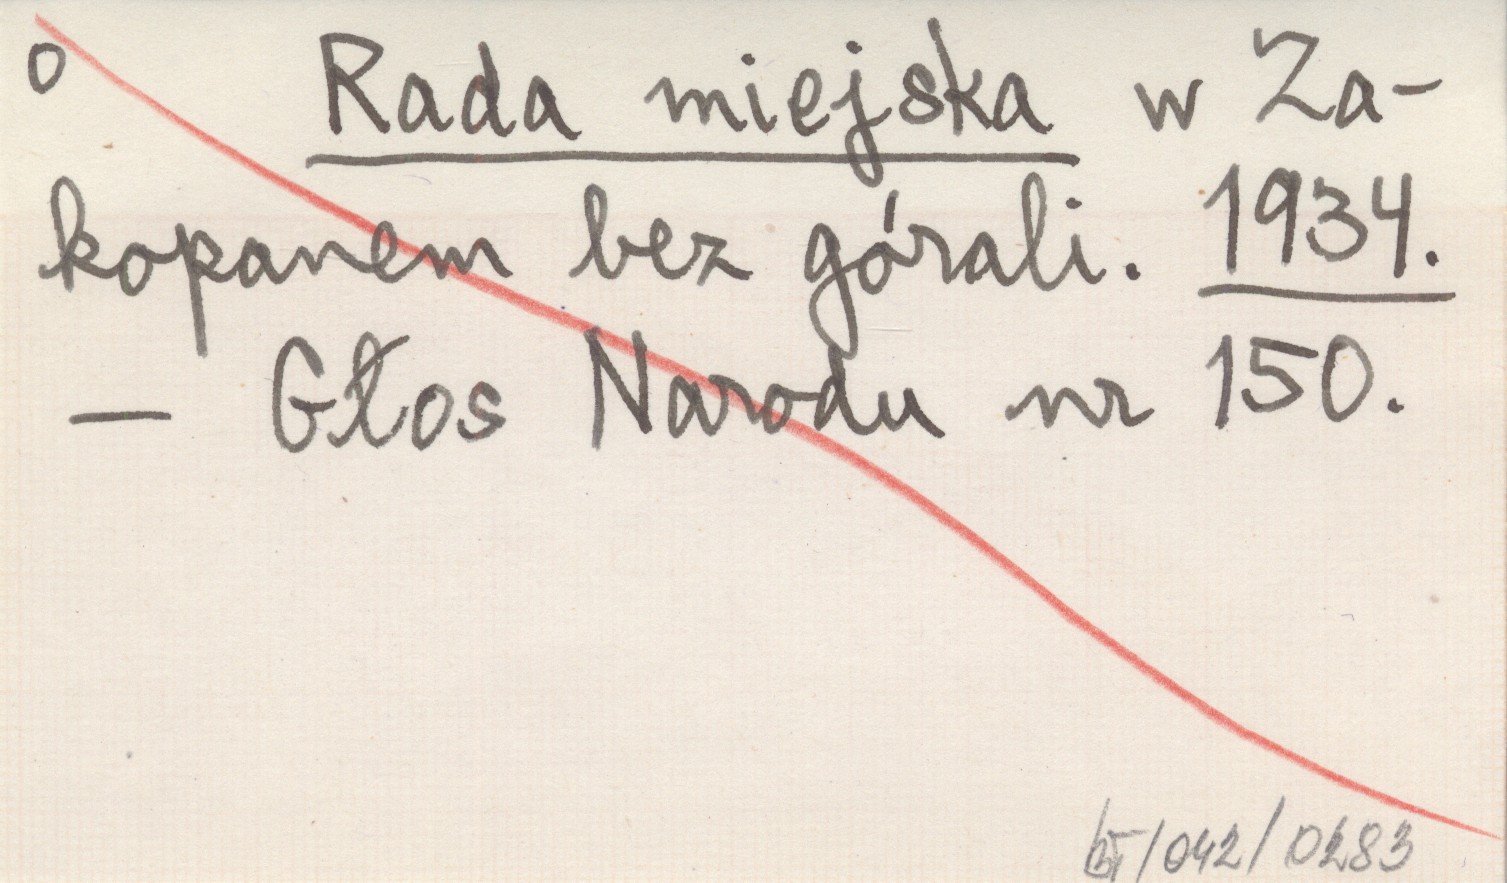 o Rada miejska w Za-
kopanem bez górali. 1934.
— Głos Narodu nr 150.
/042/0283